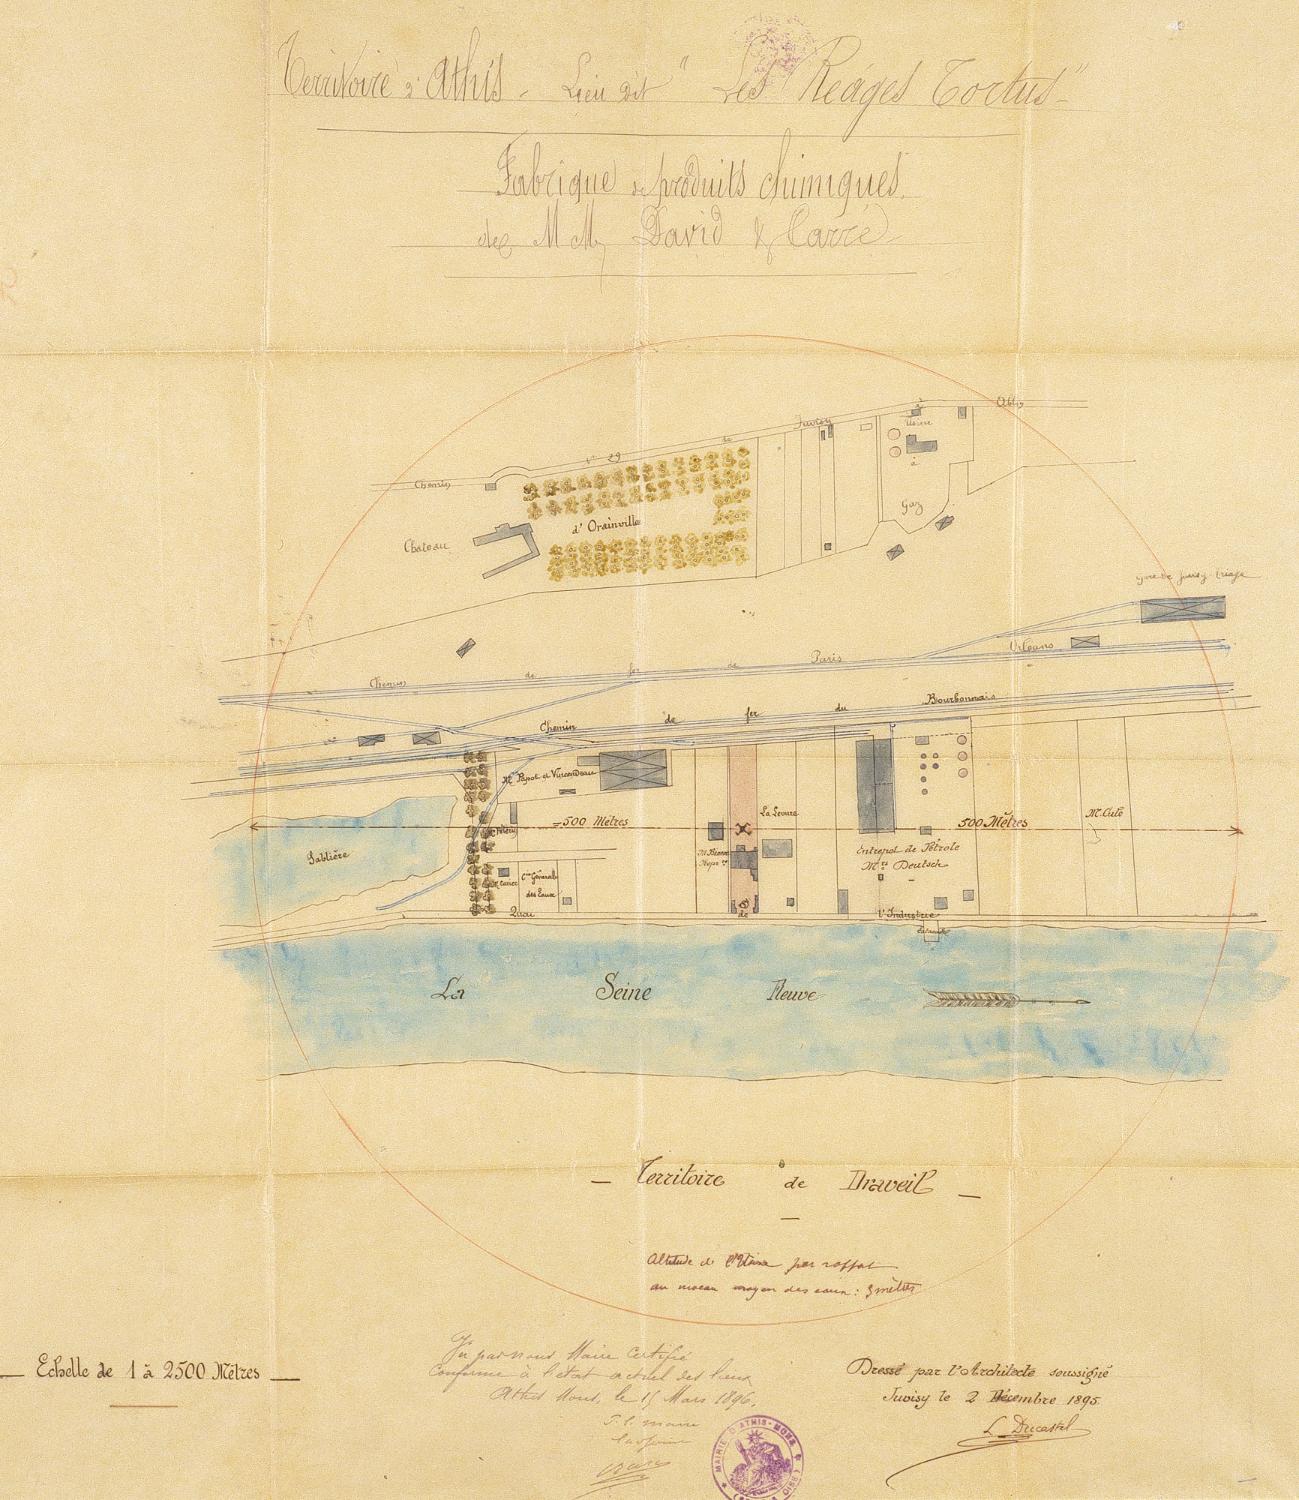 Territoire d'Athis - Lieu dit "Les Réages Tortus"
Fabrique de produits chimiques
des MM. David & Carré
Chemin n° 29 de Juvisy à Ablis
Usine
à
Gaz
Chateau
d'Orainville
gare de Juvisy triage
Chemin de fer de Paris Orléans
Chemin de fer du Bourbonnais
Mr Papot et Vincendeau
500 Mètres
La Levure
500 Mètres
Mr Cuté
Sablière
Entrepot de Pétrole
Mrs Deutsch
Cie Générale
des Eaux
Quai de l'Industrie
La Seine Fleuve
Territoire de Draveil
Altitude de l'Usine par rapport
au niveau moyen des eaux : 3 mètres
Echelle de 1 à 2500 Mètres
Vu par nous Maire Certifié
Conforme à l'état actuel des lieux
Athis Mons, le 15 Mars 1896.
Dressé par l'Architecte soussigné
Juvisy le 2 Décembre 1895
L. Ducastel
MAIRIE D'ATHIS-MONS